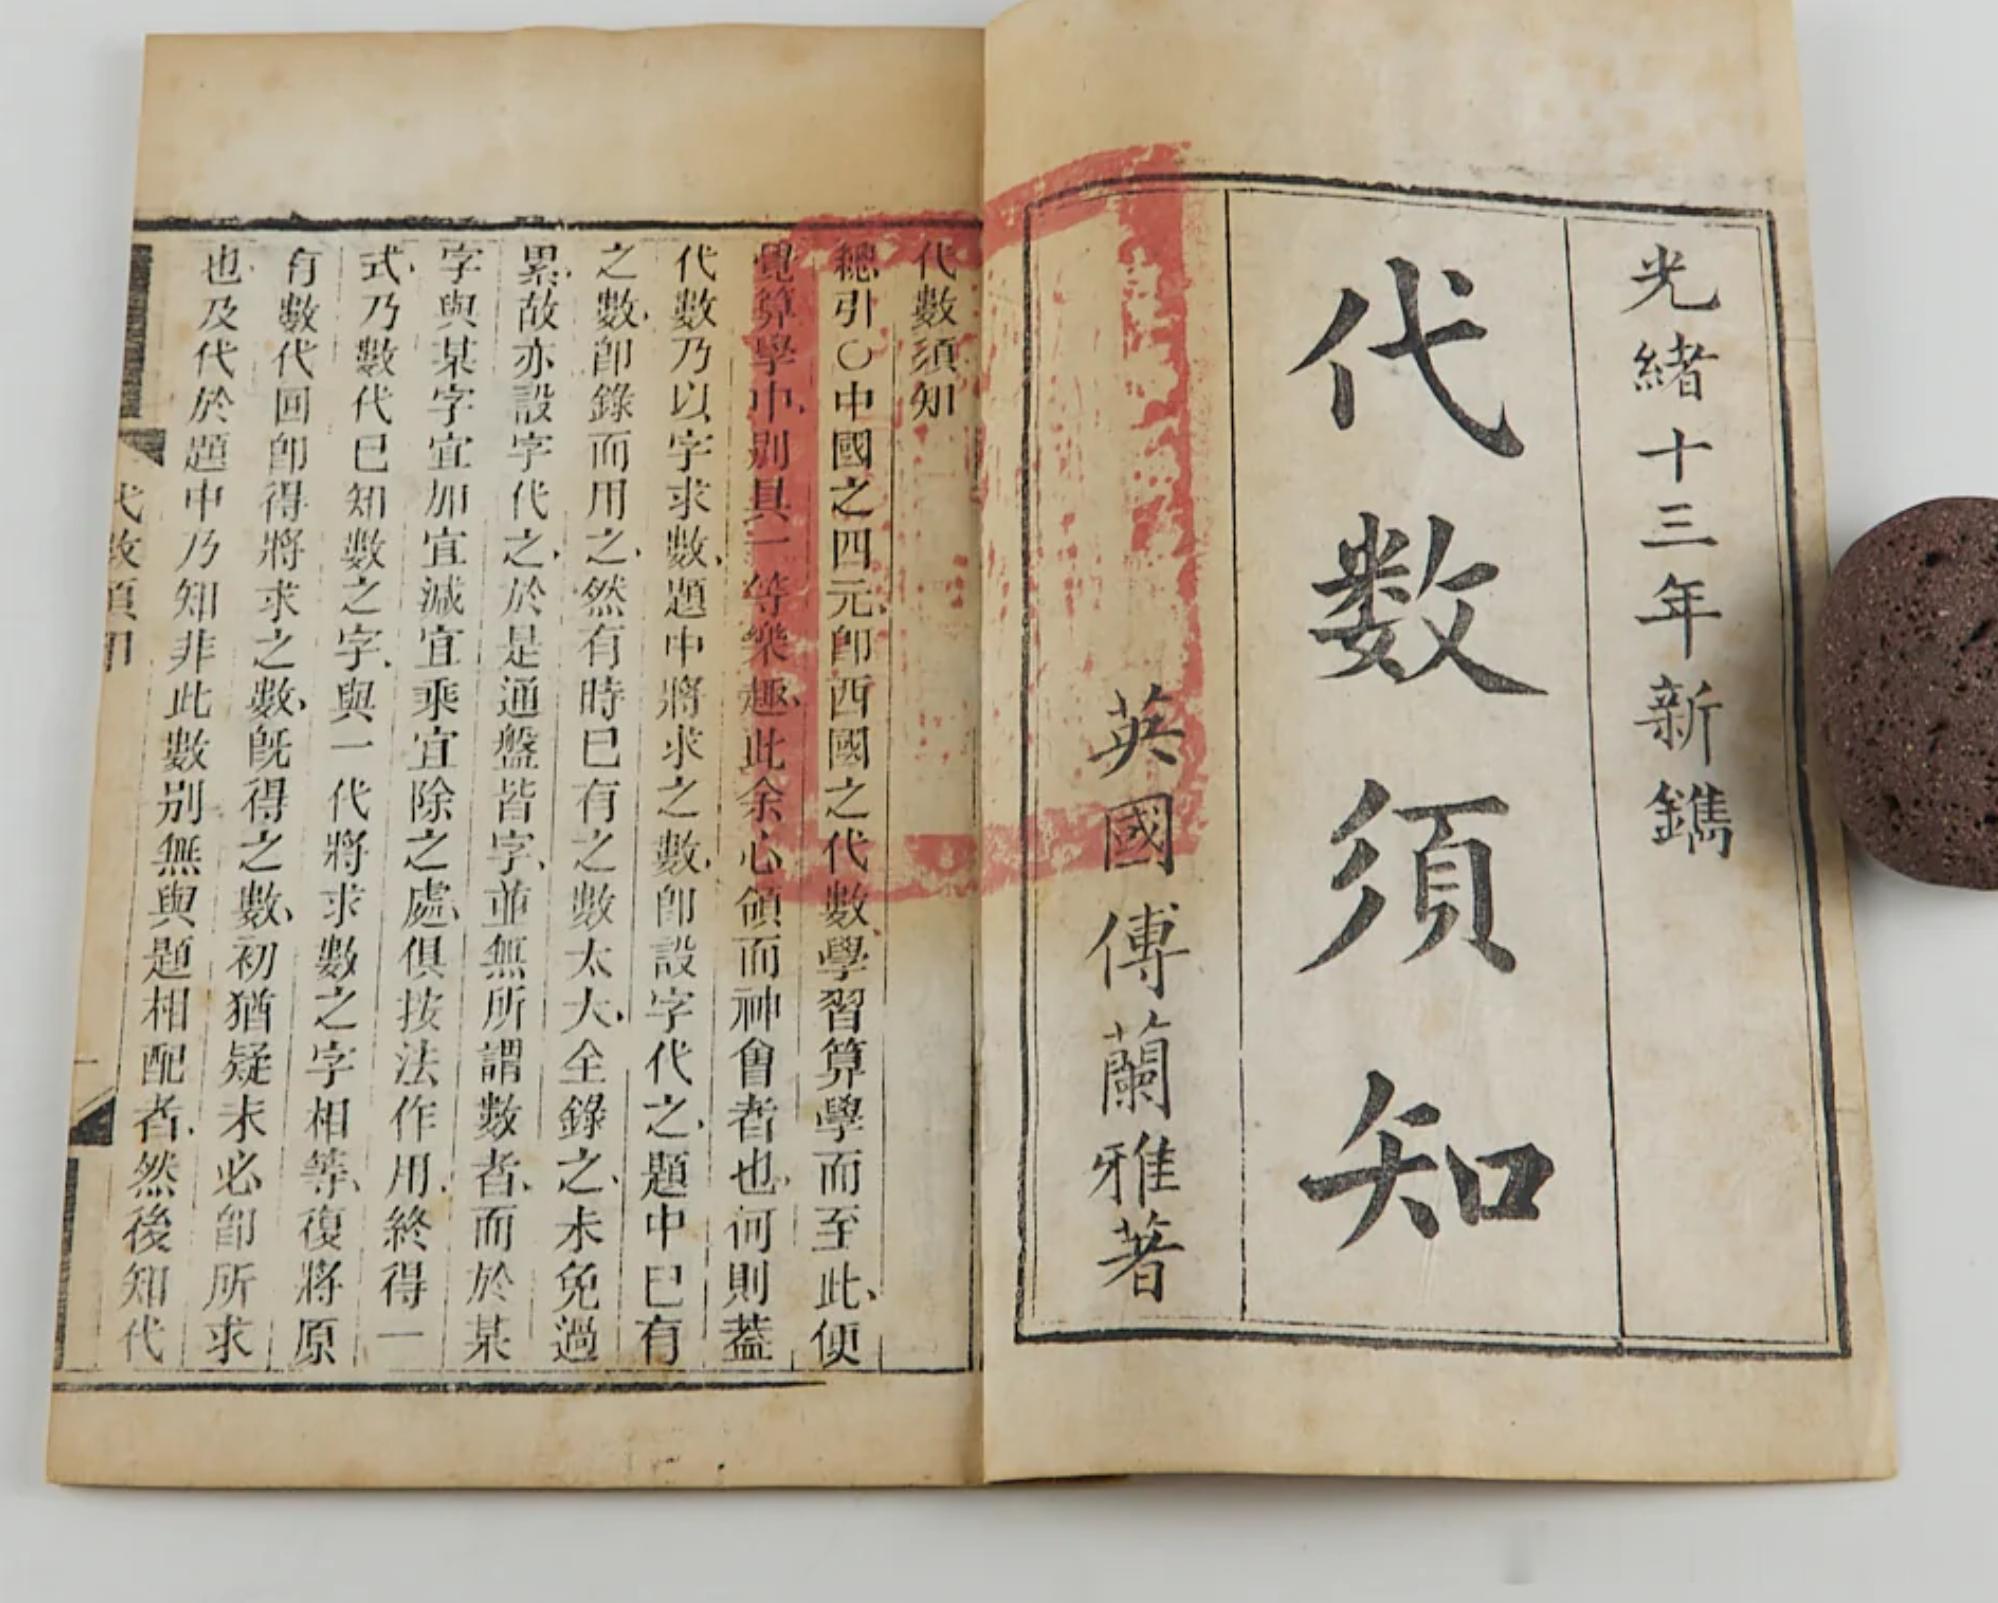 光緒十三年新鐫
代数須知
英國傅蘭雅著
代數須知
總引〇中國之四元卽西國之代數學習算學而至此、便
覺算學中、別具一等樂趣、此余心領而神會者也、何則蓋
代數乃以字求數、題中將求之數、卽設字代之、題中已有
之數、卽錄而用之、然有時已有之數太大、全錄之、未免過
累、故亦設字代之、於是通盤皆字、並無所謂數者、而於某
字與某字宜加宜減宜乘宜除之處、俱按法作用、終得一
式、乃數代已知數之字、與一代將求數之字相等、復將原
有數代回卽得將求之數、旣得之數、初猶疑未必卽所求
也、及代於題中乃知非此數別無與題相配者、然後知代
代數須知
一